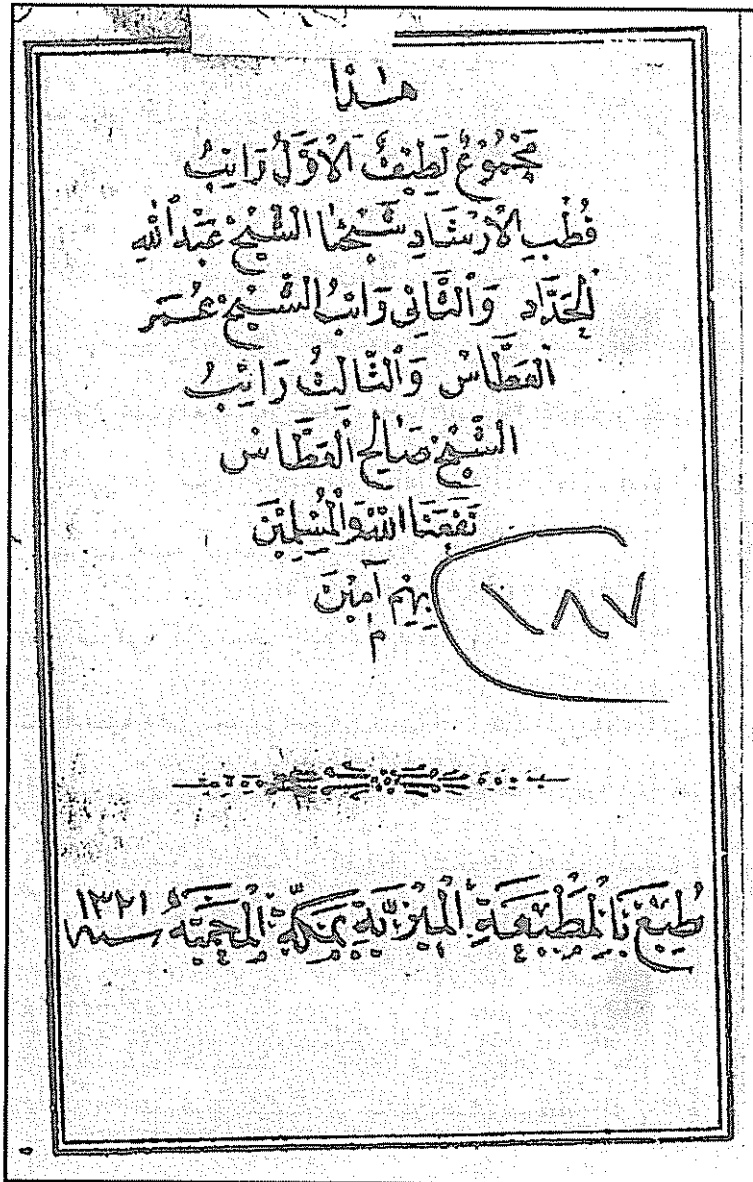 هٰذا
مَجْمُوعٌ لَطِيْفٌ اَلْاَوَّلُ رَاتِبُ
قُطْبِ الْاِرْشَادِ شَيْخِنَا الشَّيْخِ عَبْدِ اللّٰهِ
الْحَدَّادِ وَالثَّانِى رَاتِبُ الشَّيْخِ عُمَر
الْعَطَّاسْ وَالثَّالِثُ رَاتِبُ
الشَّيْخِ صَالِحِ الْعَطَّاسْ
نَفَعَنَا اللّٰهُ وَالْمُسْلِمِيْنَ
بِهِمْ آمِيْنَ
م
١٨٧
طُبِعَ بِالْمَطْبَعَةِ الْمِيْرِيَّةِ بِمَكَّةَ الْمَحْمِيَّةِ سنة ١٣٢١